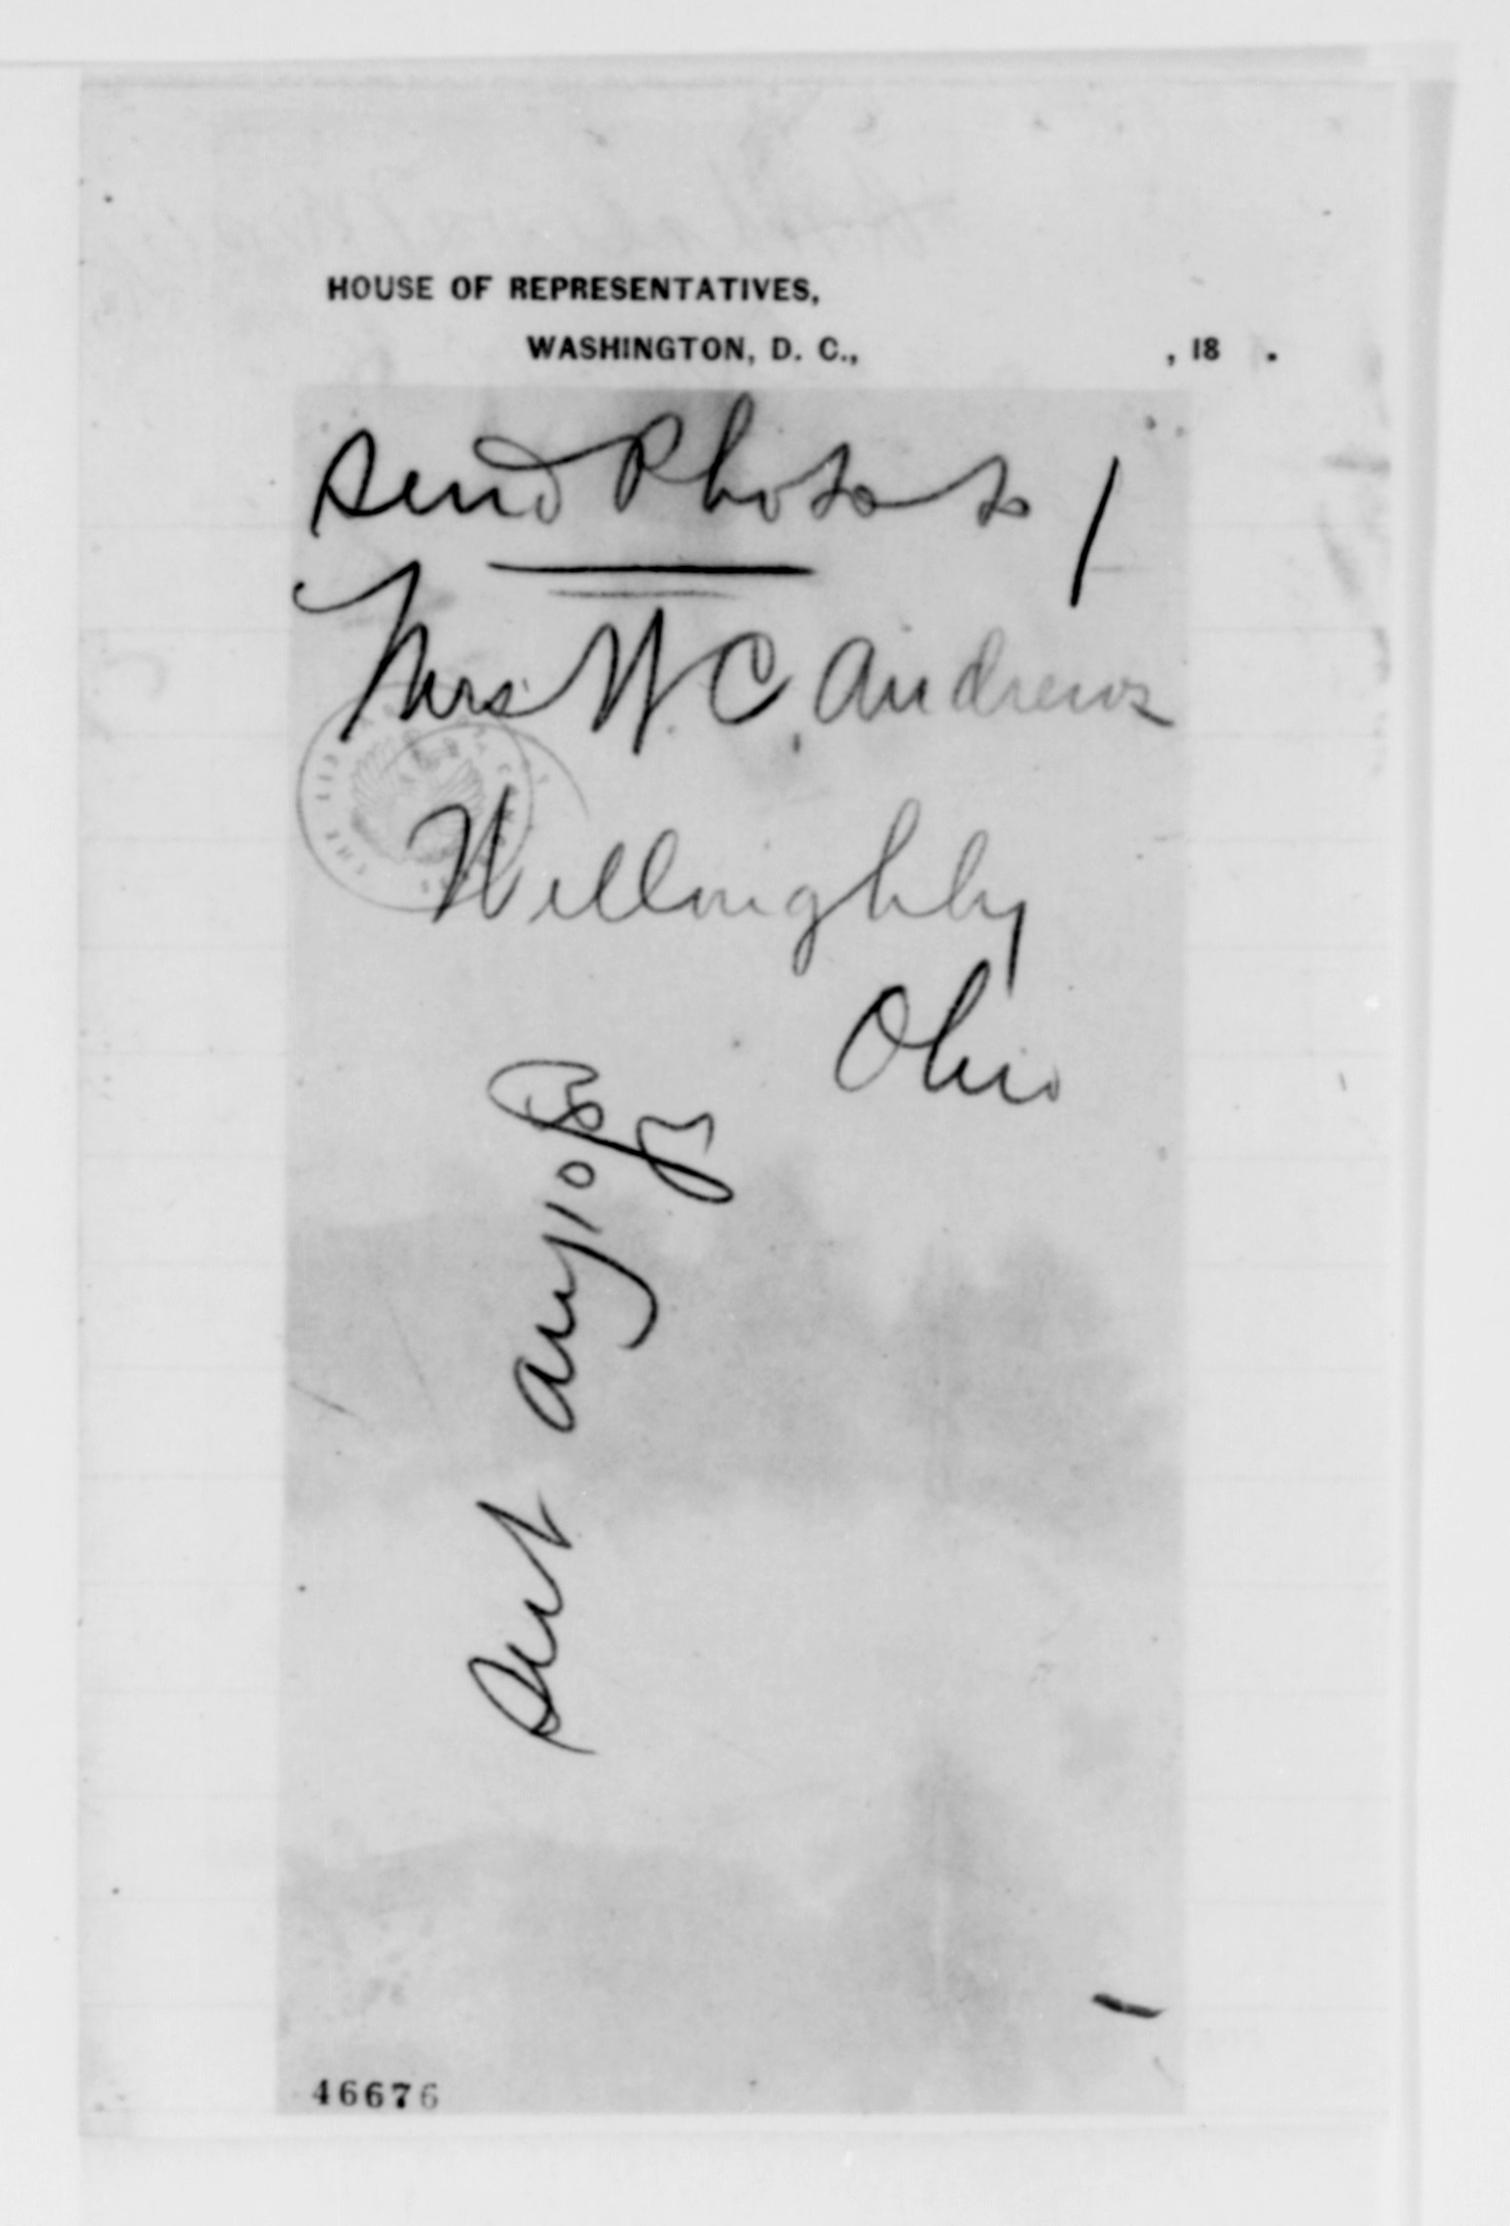 HOUSE OF REPRESENTATIVES,
WASHINGTON, D. C., , 18 .
Send Photo to
Mrs W. C. Andrews
Willoughby
Ohio
Sent Aug 10
46676